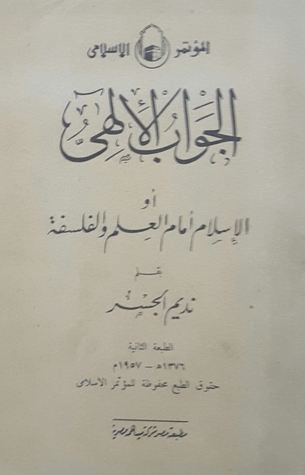 المؤتمر الإسلامى
الجواب الإلهى
أو
الإسلام أمام العلم والفلسفة
بقلم
نديم الجسر
الطبعة الثانية
١٣٧٦ھ — ١٩٥٧م
حقوق الطبع محفوظة للمؤتمر الاسلامى
مطبعة مصر شركة مساهمة مصرية